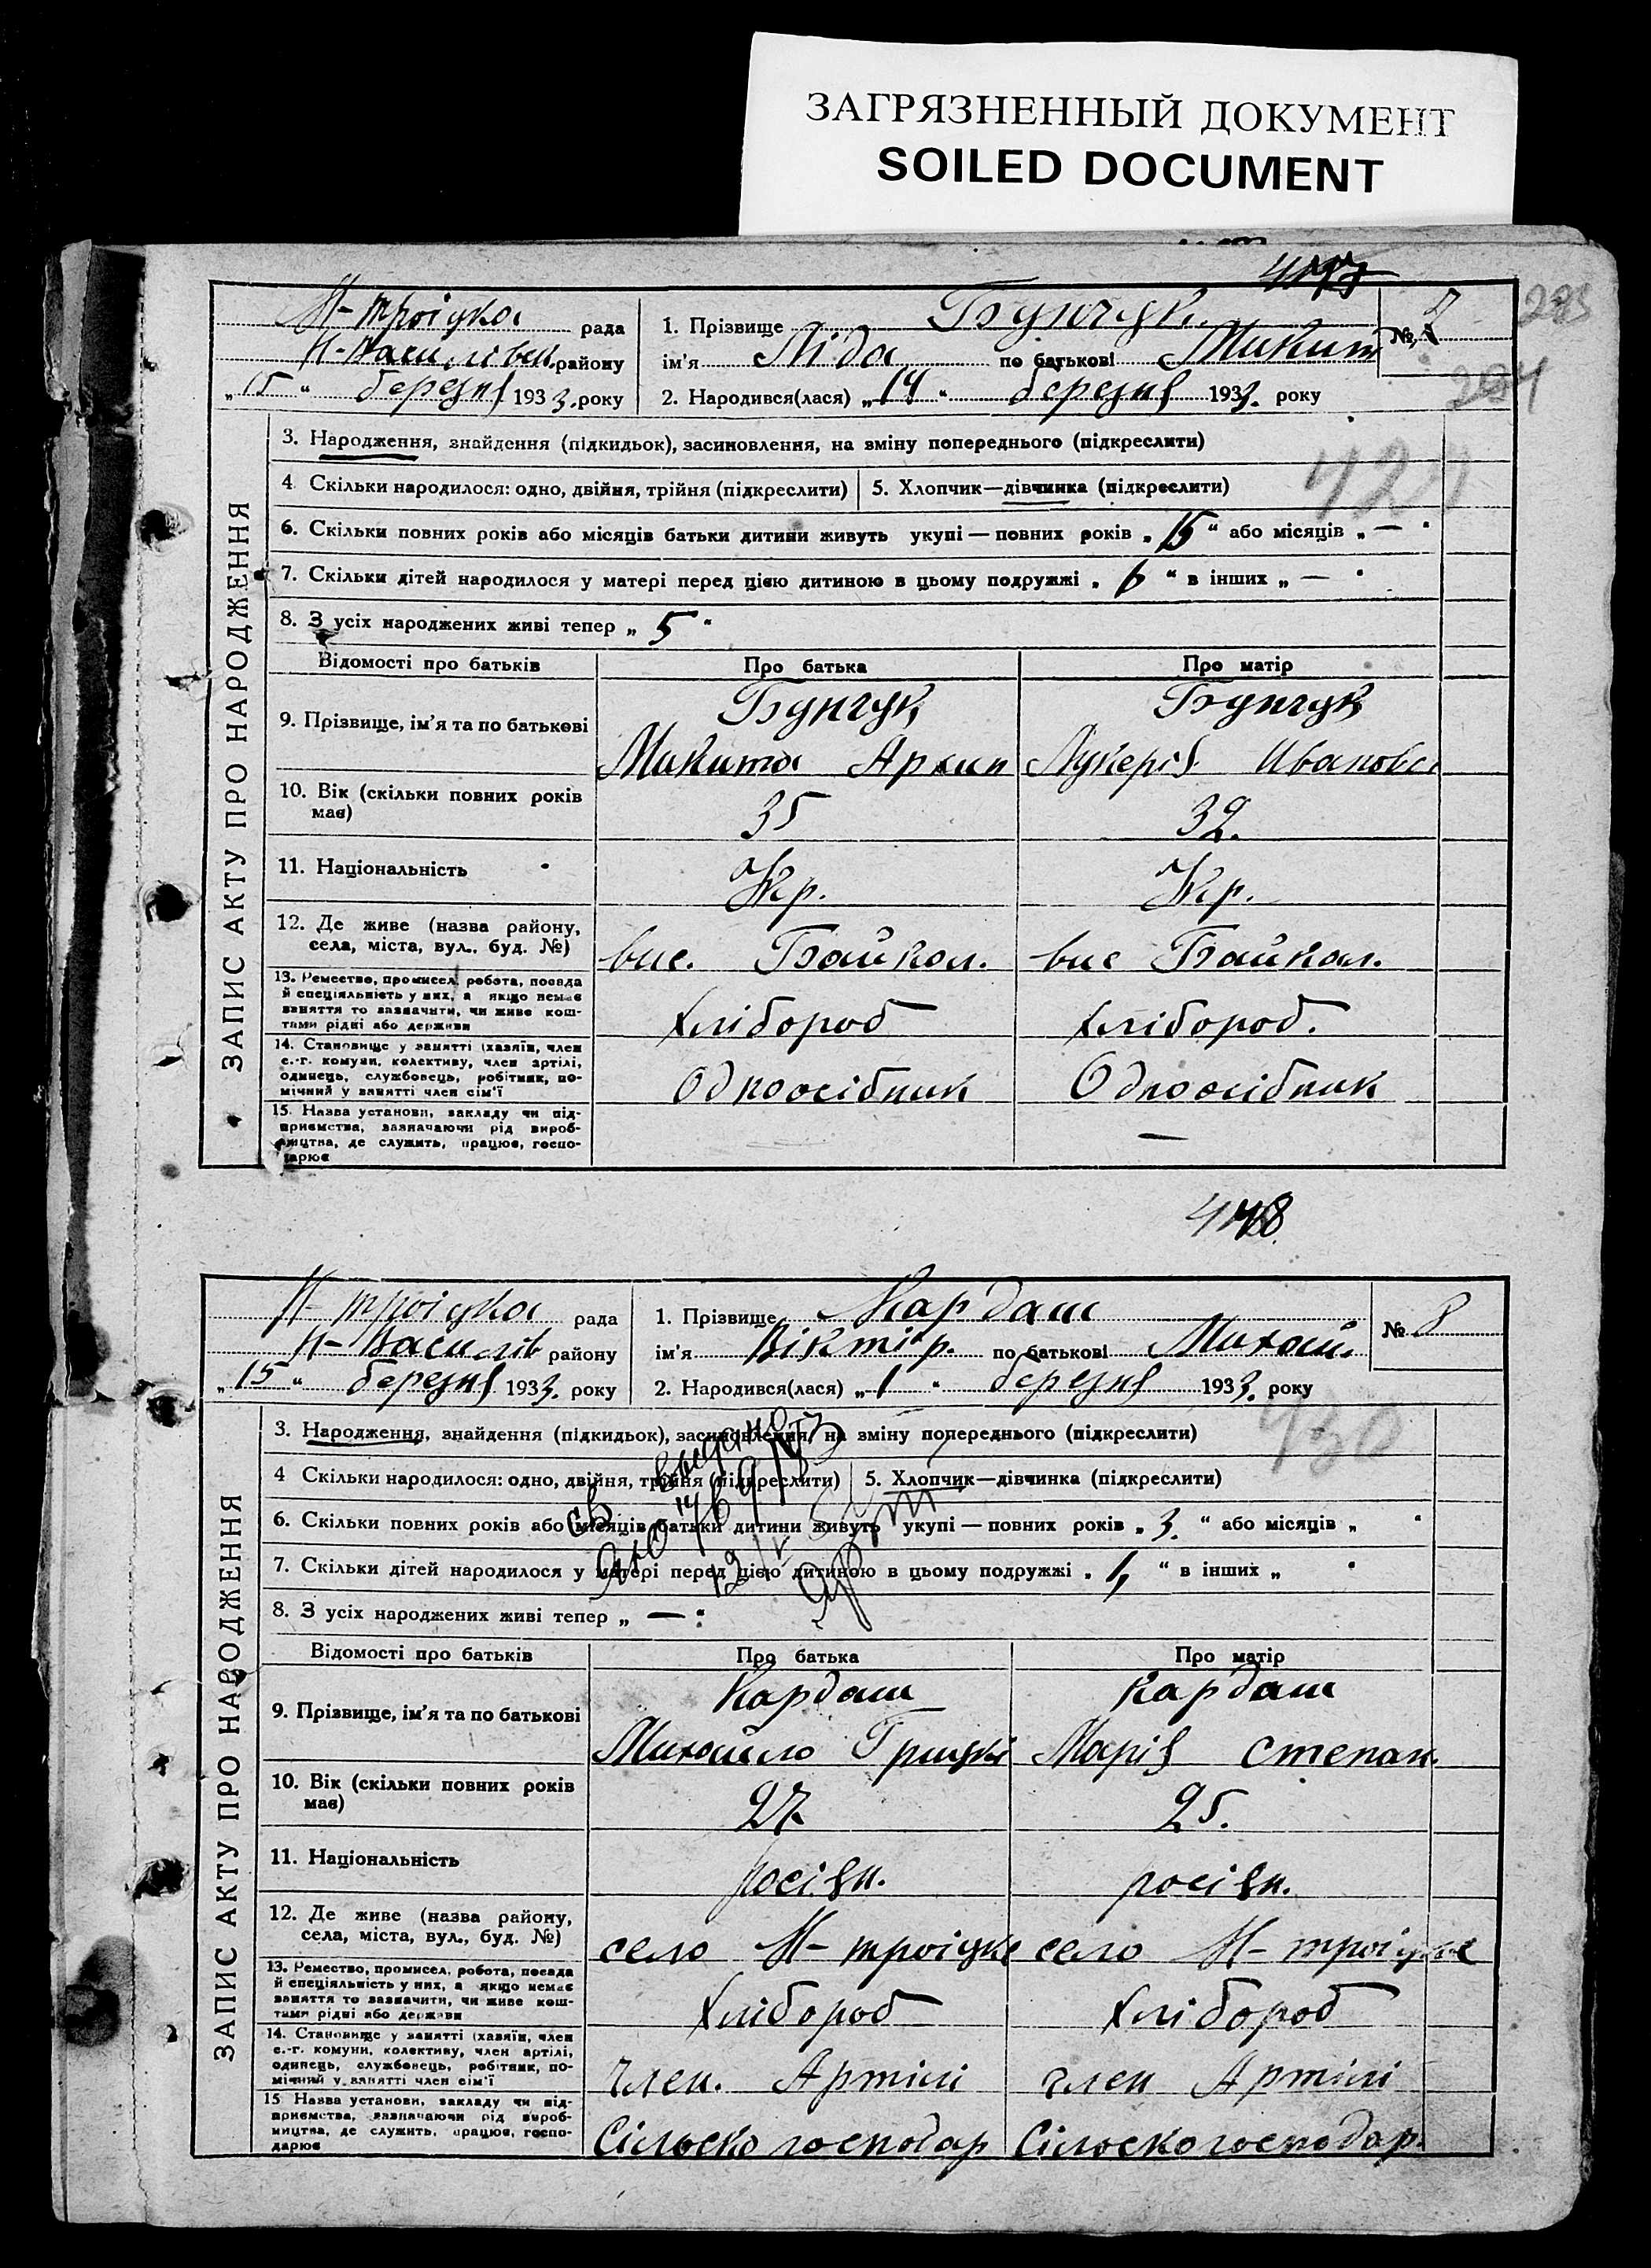 ЗАГРЯЗНЕННЫЙ ДОКУМЕНТ
SOILED DOCUMENT
ЗАПИС АКТУ ПРО НАРОДЖЕННЯ
Н-троіцка рада
Н-Василівськ. району
„15“ березня 1933. року
1. Прізвище Бунчук
ім'я Ліда по батькові Микит
№ 7
293
294
2. Народився(лася) „14“ березня 1933. року
3. Народження, знайдення (підкидьок), засиновлення, на зміну попереднього (підкреслити)
4. Скільки народилося: одно, двійня, трійня (підкреслити)
5. Хлопчик—дівчинка (підкреслити)
6. Скільки повних років або місяців батьки дитини живуть укупі — повних років „15“ або місяців „—“
7. Скільки дітей народилося у матері перед цією дитиною в цьому подружжі „6“ в інших „—“
8. З усіх народжених живі тепер „5“
Відомості про батьків Про батька Про матір
9. Прізвище, ім'я та по батькові
Бунчук Бунчук
Микита Архип Лукерія Ивановс
10. Вік (скільки повних років має)
35 32.
11. Національність
Укр. Укр.
12. Де живе (назва району, села, міста, вул.. буд. №)
вис. Байкал. вис Байкал.
13. Ремество, промисел, робота, посада й спеціяльність у них, а якщо немає заняття то зазначити, чи живе коштами рідні або держави
хлібороб хлібороб.
14. Становище у занятті (хазяїн, член с.-г. комуни, колективу, член артілі, одинець, службовець, робітник, помічний у занятті член сім'ї
Одноосібник Одноосібник
15. Назва установи, закладу чи підприємства, зазначаючи рід виробництва, де служить, працює, господарює
—
448
ЗАПИС АКТУ ПРО НАРОДЖЕННЯ
Н-троіцка рада
Н-Василів району
„15“ березня 1933. року
1. Прізвище Кардаш
ім'я Віктір. по батькові Михайл.
№ 8
2. Народився(лася) „1“ березня 1933. року
430
3. Народження, знайдення (підкидьок), засиновлення, на зміну попереднього (підкреслити)
4 Скільки народилося: одно, двійня, трійня (підкреслити)
5. Хлопчик—дівчинка (підкреслити)
6. Скільки повних років або місяців батьки дитини живуть укупі — повних років „3.“ або місяців „ “
7. Скільки дітей народилося у матері перед цією дитиною в цьому подружжі „1,“ в інших „ “
8. З усіх народжених живі тепер „—“
Відомості про батьків Про батька Про матір
9. Прізвище, ім'я та по батькові
Кардаш Кардаш
Михайло Грицькі Марія Степан.
10. Вік (скільки повних років має)
27 25.
11. Національність
росіян. росіян.
12. Де живе (назва району, села, міста, вул., буд. №)
село Н-троіцке село Н-троіцке
13. Ремество, промисел, робота, посада й спеціяльність у них, а якщо немає заняття то зазначити, чи живе коштами рідні або держави
хлібороб хлібороб
14. Становище у занятті (хазяїн, член с.-г. комуни, колективу, член артілі, одинець, службовець, робітник, помічний у занятті член сім'ї
член. Артілі член Артілі
15 Назва установи, закладу чи підприємства, зазначаючи рід виробництва, де служить, працює, господарює
Сільско господар Сільско господар.